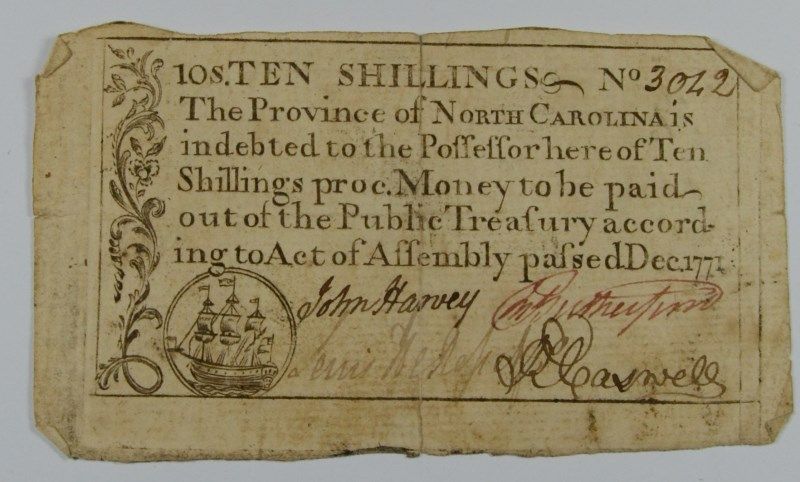 10S. TEN SHILLINGS No 3042
The Province of NORTH CAROLINA is
indebted to the Poſſeſſor here of Ten
Shillings proc. Money to be paid
out of the Public Treaſury accord-
ing to Act of Aſſembly paſſed Dec. 1771
John Harvey Rutherfurd
Lewis
R Caswell